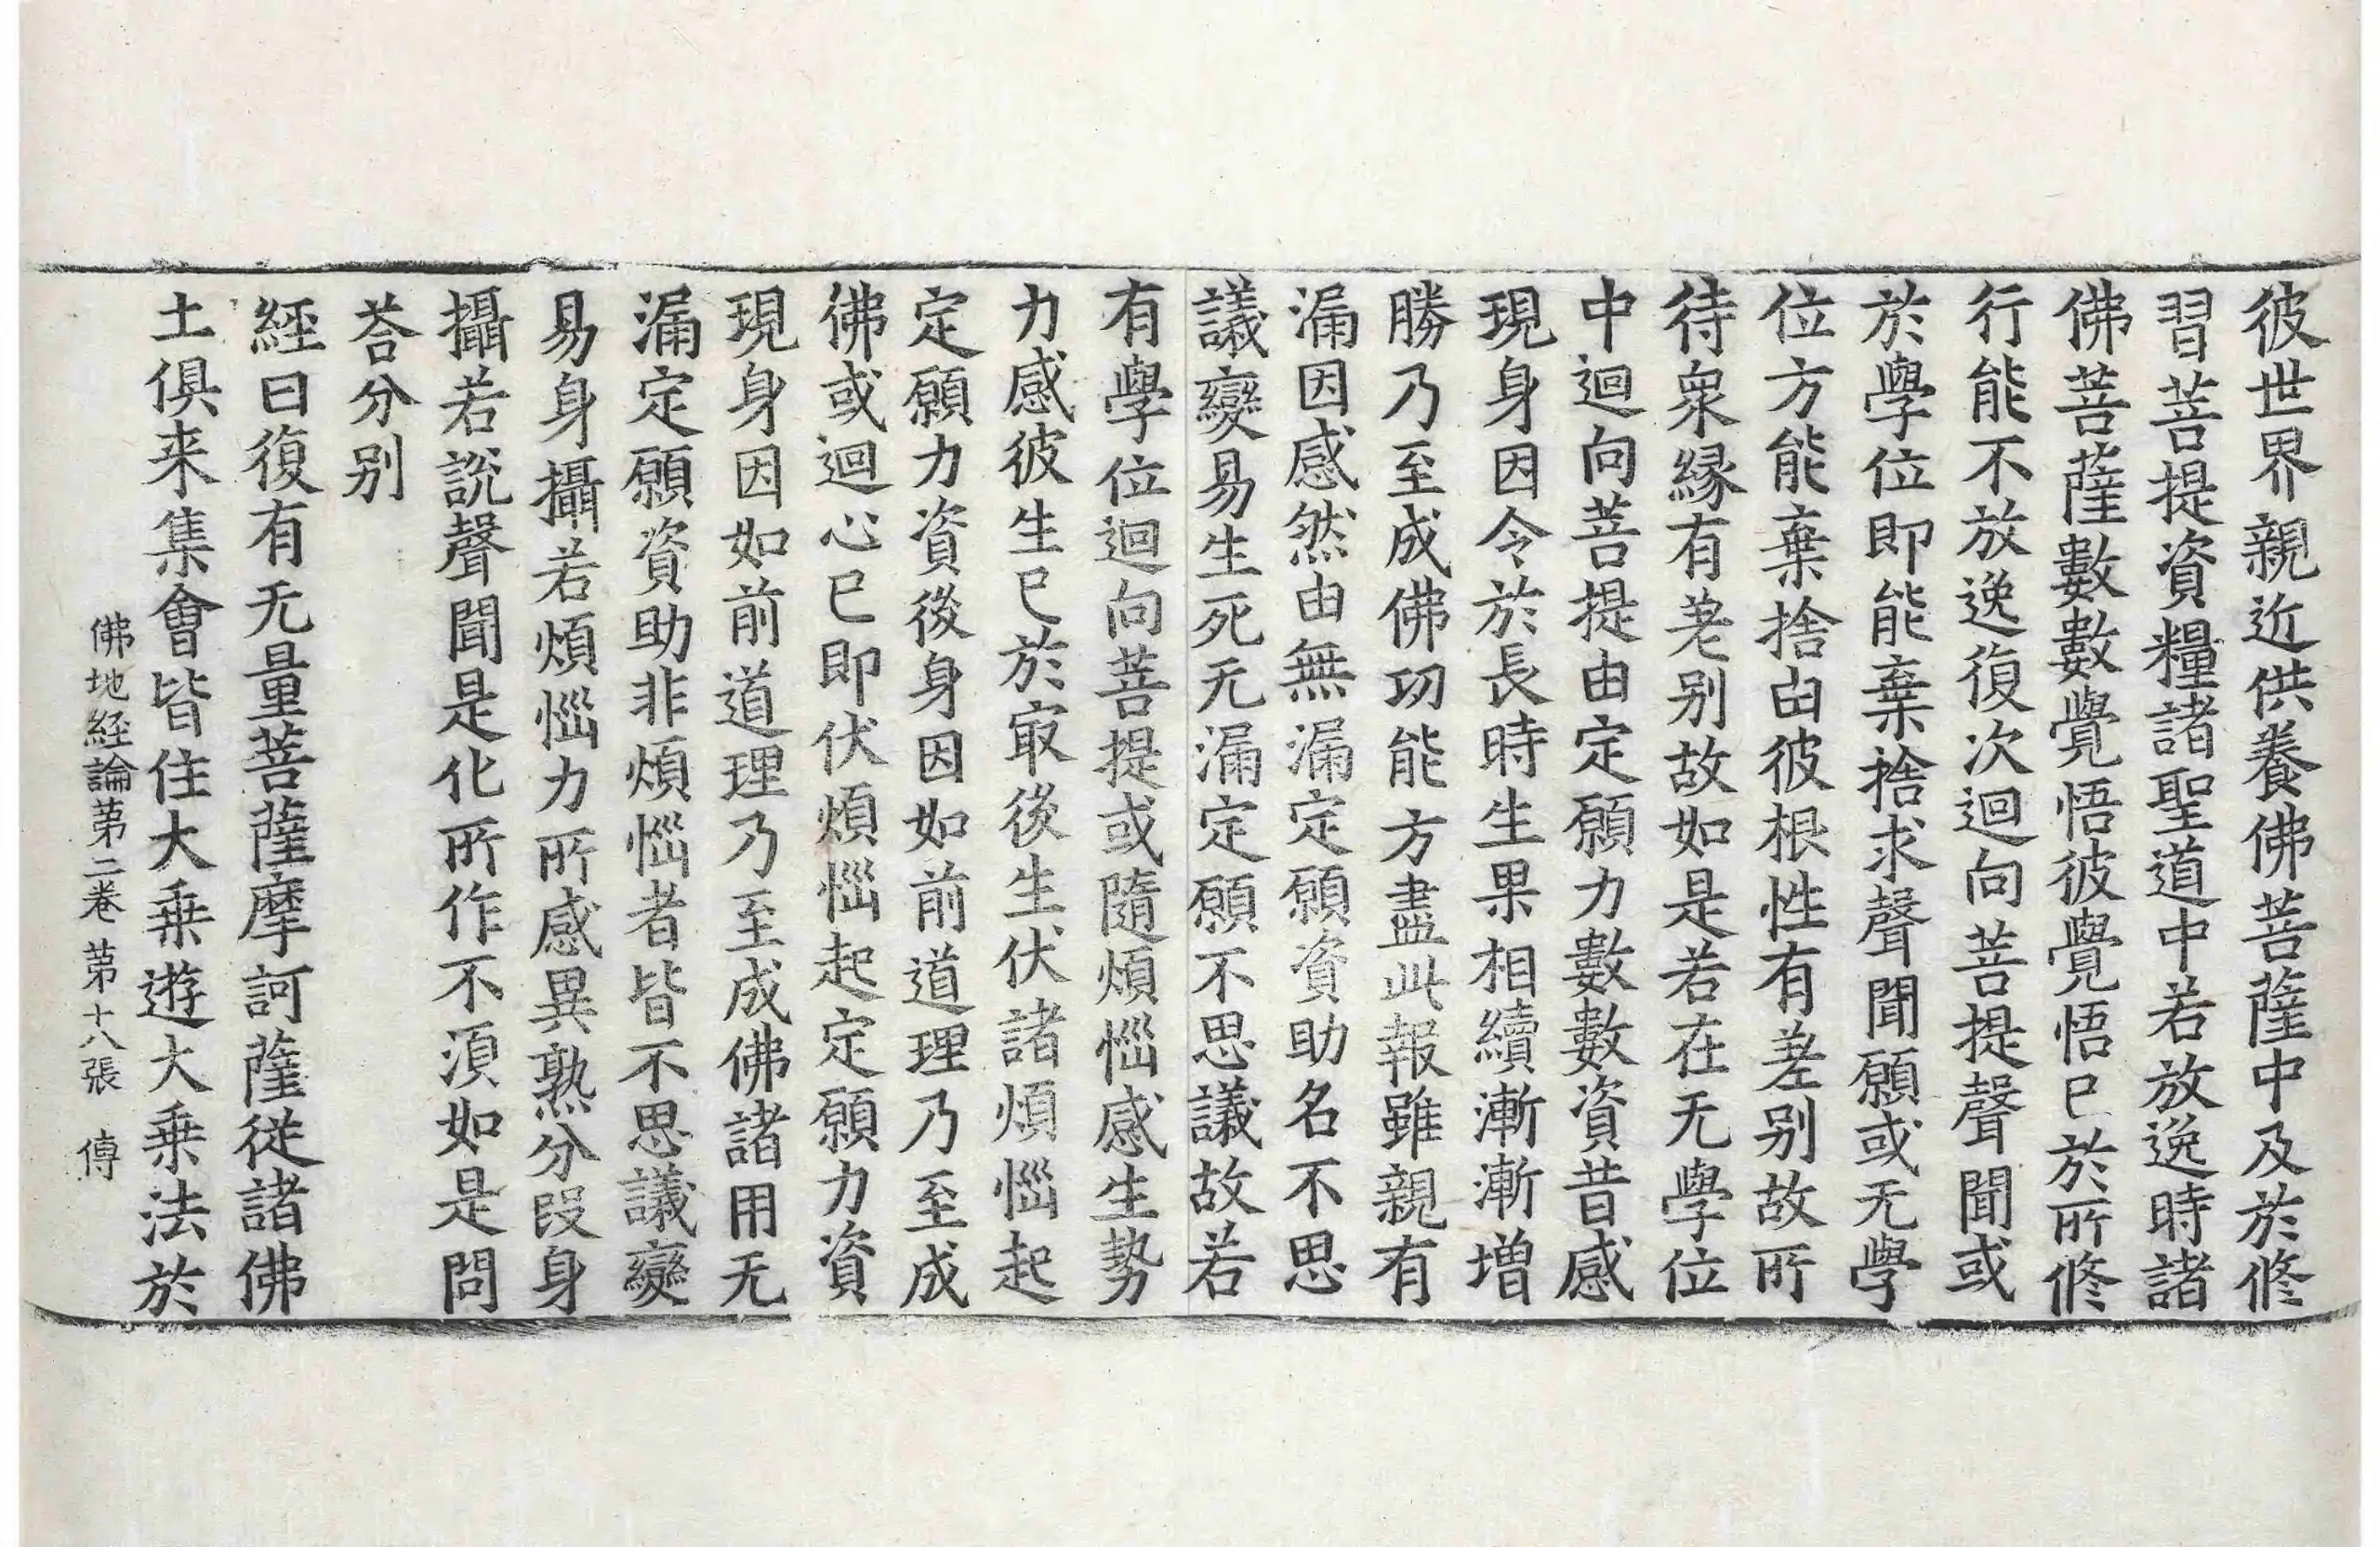 彼世界親近供養佛菩薩中及於修
習菩提資糧諸聖道中若放逸時諸
佛菩薩數數覺悟彼覺悟已於所修
行能不放逸復次迴向菩提聲聞或
於學位即能棄捨求聲聞願或无學
位方能棄捨由彼根性有差別故所
待衆緣有差別故如是若在无學位
中迴向菩提由定願力數數資昔感
現身因令於長時生果相續漸漸增
勝乃至成佛功能方盡此報雖親有
漏因感然由無漏定願資助名不思
議變易生死无漏定願不思議故若
有學位迴向菩提或隨煩惱感生勢
力感彼生已於㝡後生伏諸煩惱起
定願力資後身因如前道理乃至成
佛或迴心已即伏煩惱起定願力資
現身因如前道理乃至成佛諸用无
漏定願資助非煩惱者皆不思議變
易身攝若煩惱力所感異熟分段身
攝若說聲聞是化所作不須如是問
荅分別
經曰復有无量菩薩摩訶薩從諸佛
土俱来集會皆住大乗遊大乗法於
佛地経論第二卷 第十八張 傳